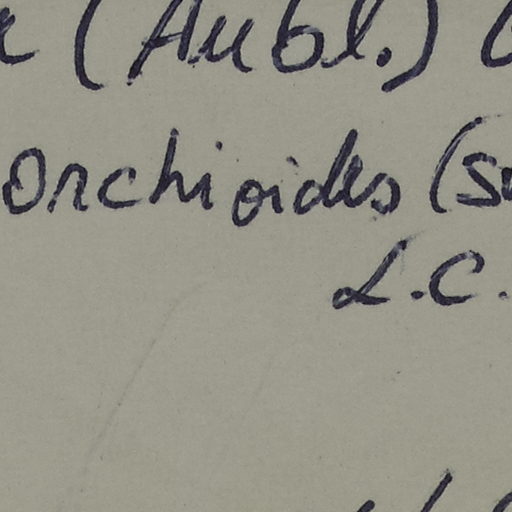 (Aubl.)
orchioides (s
L.C.